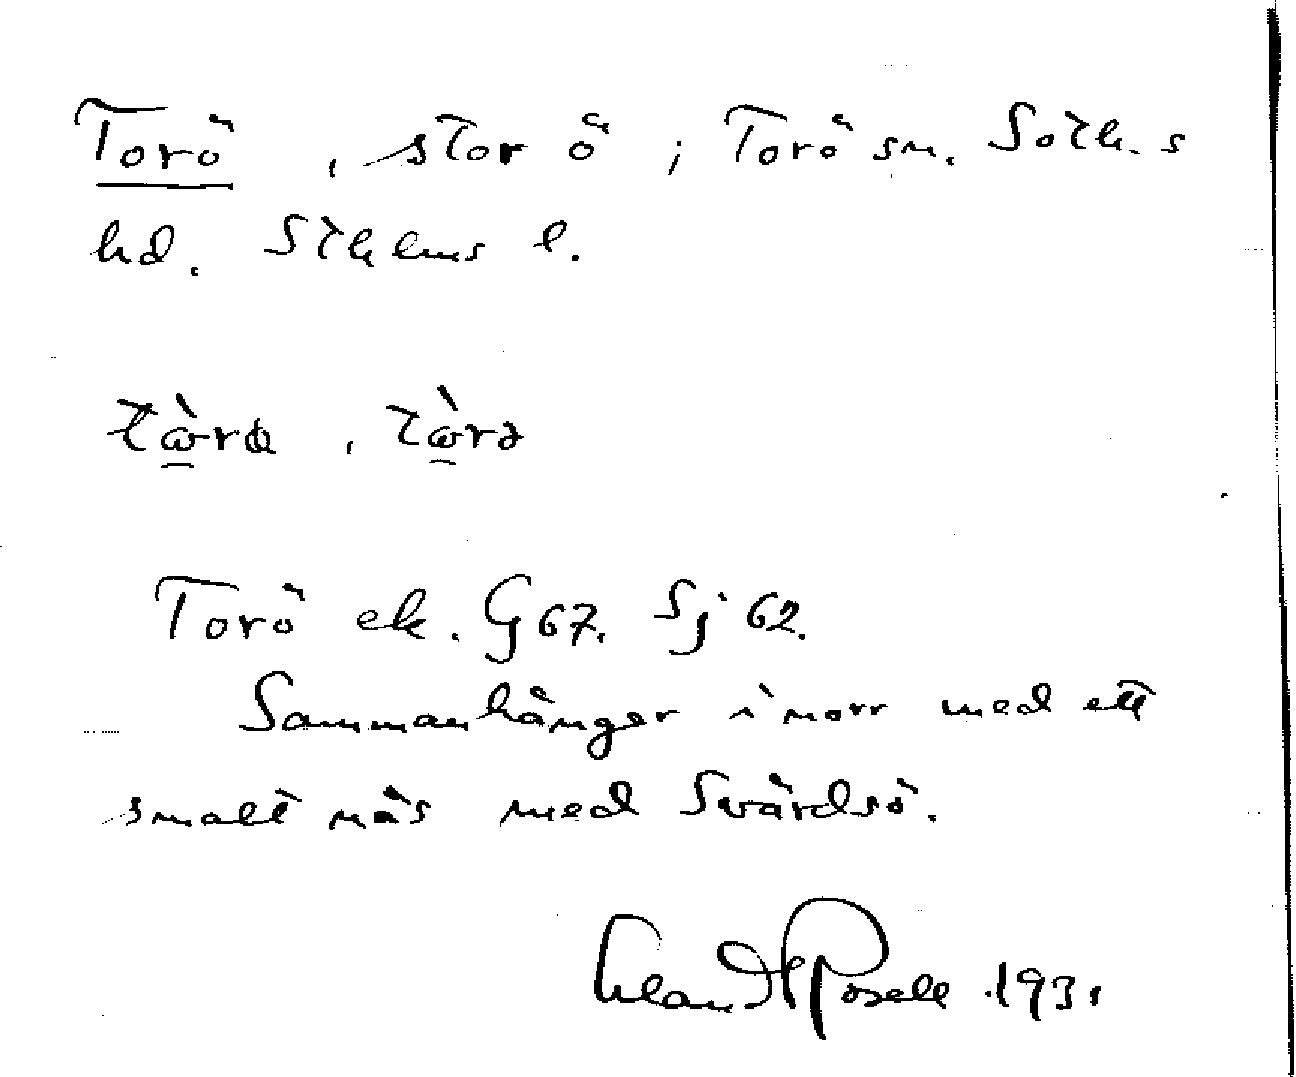 Torö, stor ö; Torö sn. Soth.s
hd. Sthlms l.
Torö ek. G 67. Sj 62.
Sammanhänger i norr med ett
smalt näs med Svärdsö.
Rosell 1931